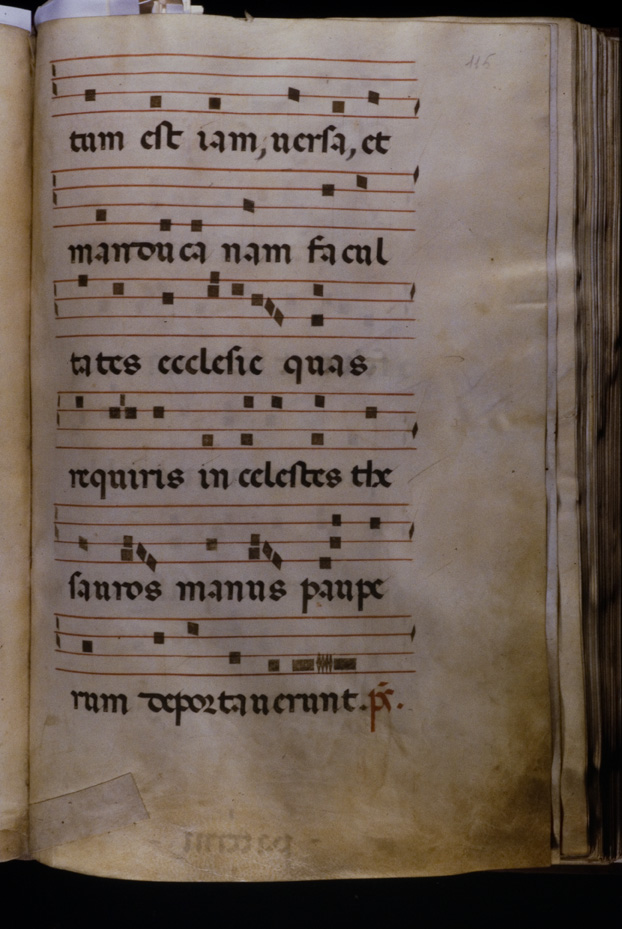 115
tum est iam, uersa, et
manduca nam facul
tates ecclesie quas
requiris in celestes the
sauros manus paupe
rum deportauerunt. ps.